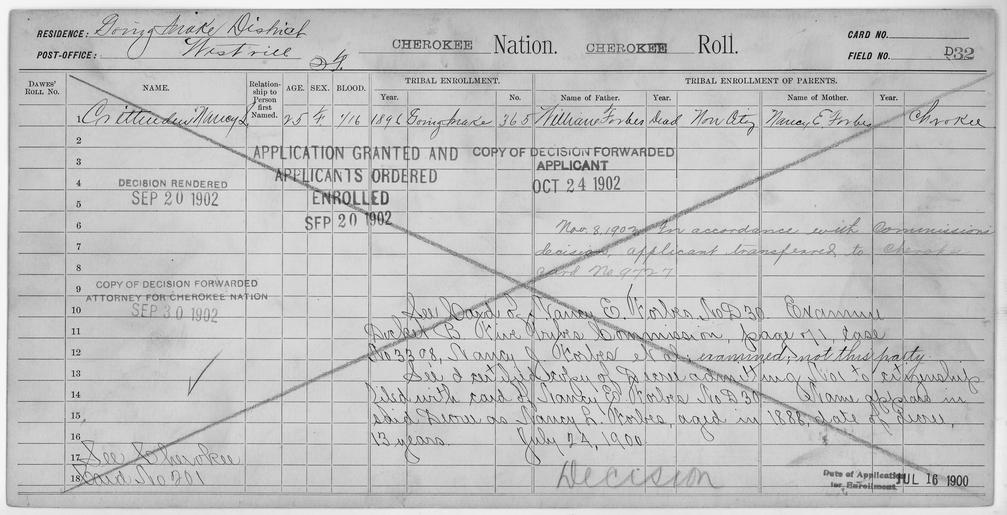 RESIDENCE: Goingsnake District
POST-OFFICE: Westville I.T.
CHEROKEE Nation. CHEROKEE Roll.
CARD NO.
FIELD NO. D32
DAWES' ROLL NO.
NAME.
Relationship to Person first Named.
AGE. SEX. BLOOD.
TRIBAL ENROLLMENT.
Year. No.
TRIBAL ENROLLMENT OF PARENTS.
Name of Father. Year. Name of Mother. Year.
1 Crittenden, Nancy L. 25 F 1/16 1896 Goingsnake 365 William Forbes Dead Non Citz Nancy E. Forbes Cherokee
2
3
4
5
6
7
8
9
10
11
12
13
14
15
16
17
18
APPLICATION GRANTED AND
APPLICANTS ORDERED
ENROLLED
SEP 20 1902
COPY OF DECISION FORWARDED
APPLICANT
OCT 24 1902
DECISION RENDERED
SEP 20 1902
Nov. 8, 1902 In accordance with Commission's
decision, applicant transferred to Cherokee
card No 9727
COPY OF DECISION FORWARDED
ATTORNEY FOR CHEROKEE NATION
SEP 30 1902
See Card of Nancy E. Forbes, No D30. Examine
Docket B. Five Tribes Commission, page 71 case
No 3398, Nancy J. Forbes et al; examined; not this party.
See certified copy of Decree admitting her to citizenship
filed with card of Nancy E. Forbes No D30 Name appears in
said Decree as Nancy L. Forbes, aged in 1888, date of decree,
13 years. July 24, 1900
See Cherokee
Card No 201
Decision
Date of Application
for Enrollment.
JUL 16 1900